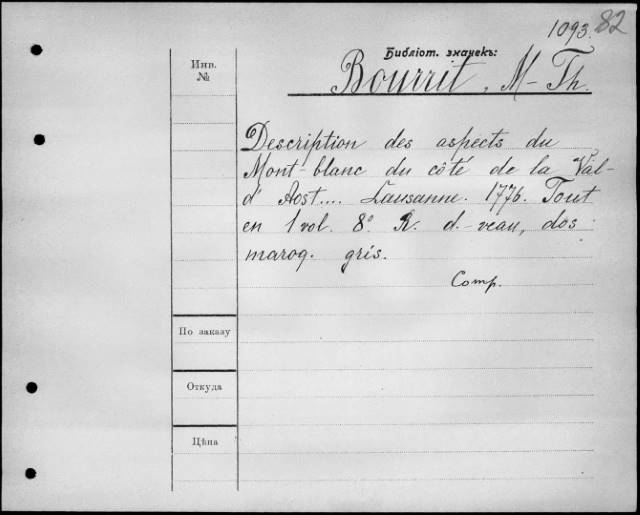 1093. 82
Библіот. значекъ:
Инв.
№
Bourrit, M-Th.
Description des aspects du
Mont-blanc du côté de la Val-
d'Aost.... Lausanne. 1776. Tout
en 1 vol. 8º. R. d.-veau, dos
maroq. gris.
Comp.
По заказу
Откуда
Цѣна